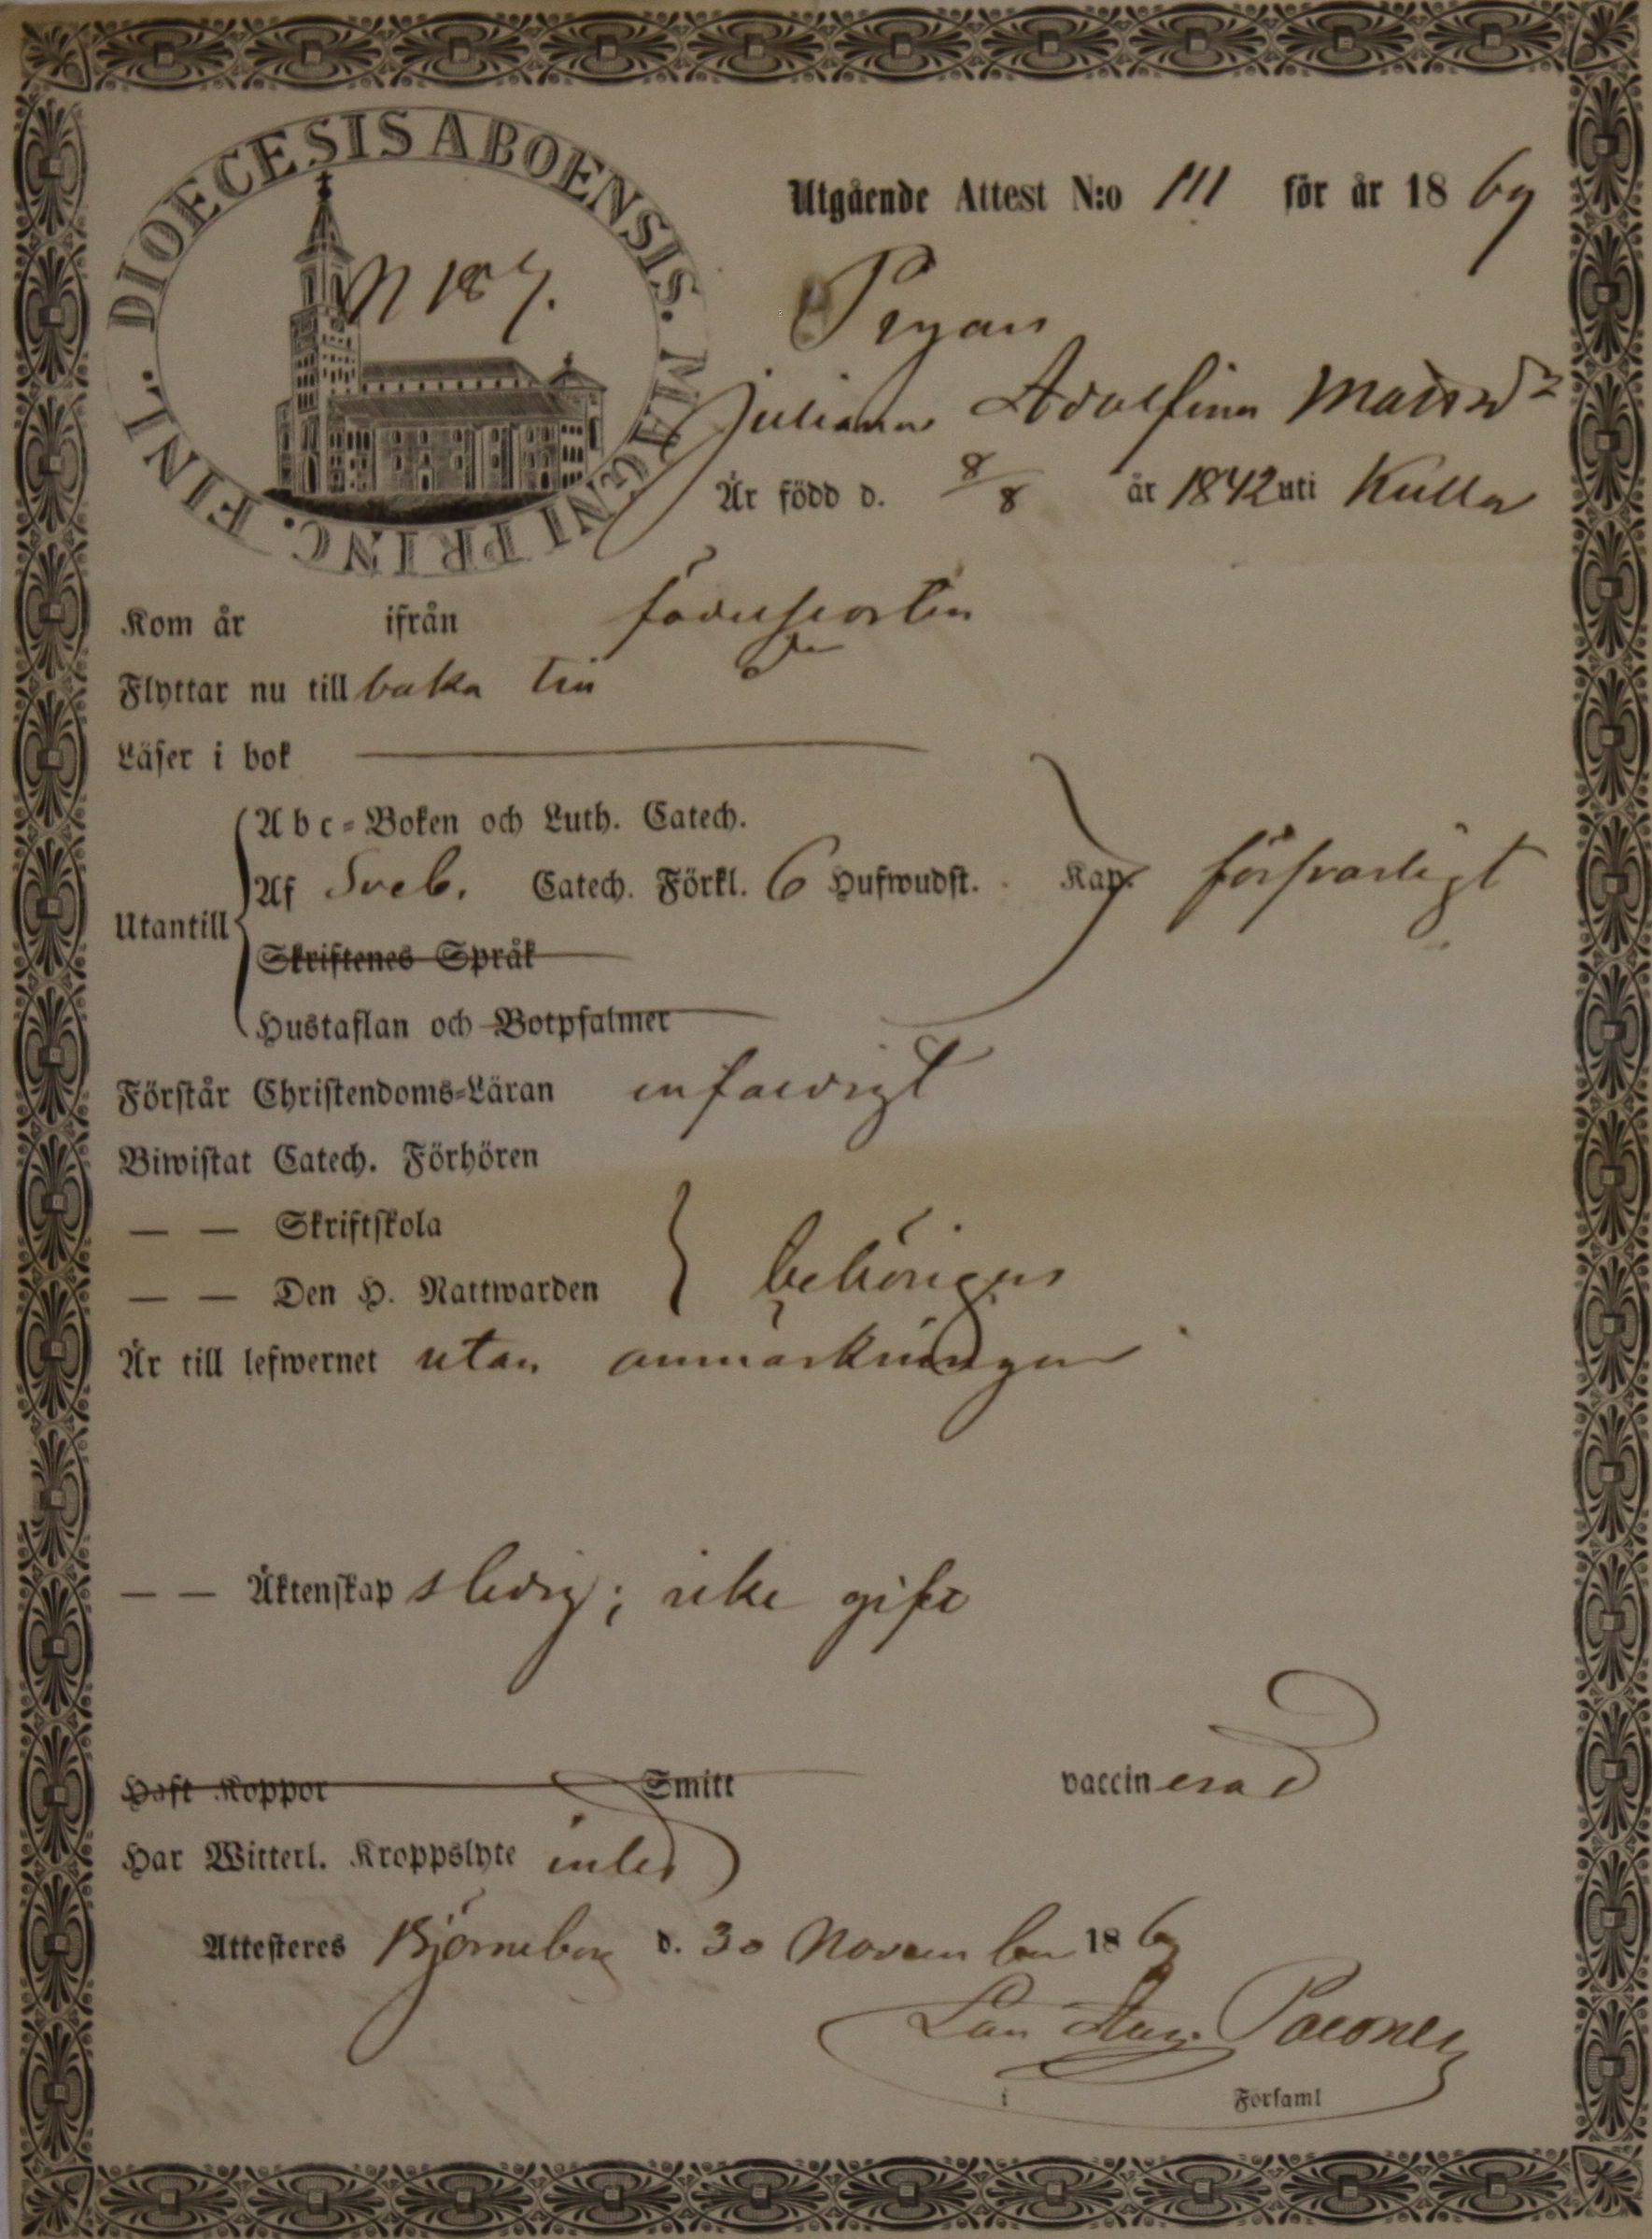 DIOECESIS ABOENSIS. MAGNI PRINC. FINL.
N 187.
Utgående Attest N:o 111 för år 1869
Pigan
Juliana Adolfina Matsd:r
Är född d. 8/8 år 1842 uti Kulla
Kom år ifrån födelseorten
Flyttar nu till baka till
Läser i bok
Abc-Boken och Luth. Catech.
Utantill
Af Sveb. Catech. Förkl. 6 Hufwudst. Kap. försvarligt
Skriftenes Språk
Hustaflan och Botpsalmer
Förstår Christendoms-Läran enfaldigt
Biwistat Catech. Förhören
— — Skriftskola
— — Den H. Nattwarden behörigen
Är till lefwernet utan anmärkningar
— — Äktenskap sledig; icke gift
Haft Koppor Smitt vaccinerad
Har Witterl. Kroppslyte intet
Attesteres Björneborg d. 30 November 1869
i Församl